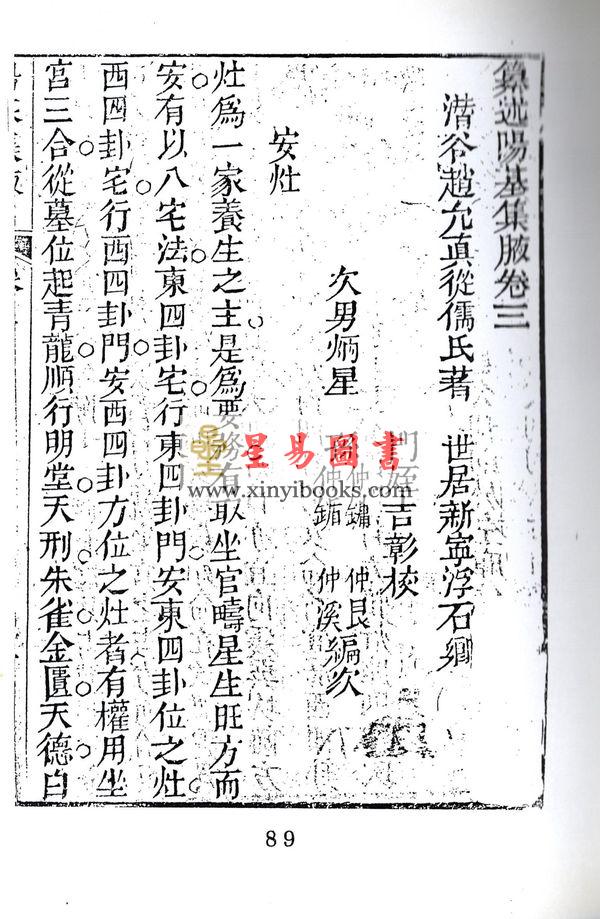 纂述陽基集腋卷三
潛谷趙允眞從儒氏著 世居新寧浮石鄉
門姪 吉彰校
次男炳星 仲鏽 仲艮 仲鍎 仲溪 編次
安灶
灶爲一家養生之主是爲要務有取坐宫疇星生旺方而
安有以八宅法東四卦宅行東四卦門安東四卦位之灶
西四卦宅行西四卦門安西四卦方位之灶者有權用坐
宫三合從墓位起青龍順行明堂天刑朱雀金匱天德白
星易圖書
www.xinyibooks.com
89